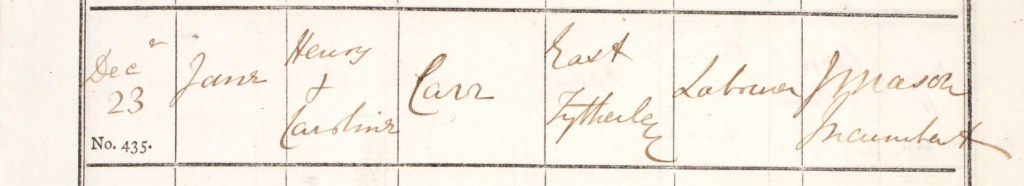 Decr
23
No. 435.
Jane
Henry
+
Caroline
Carr
East
Tytherley
Labourer
J Mason
Incumbent